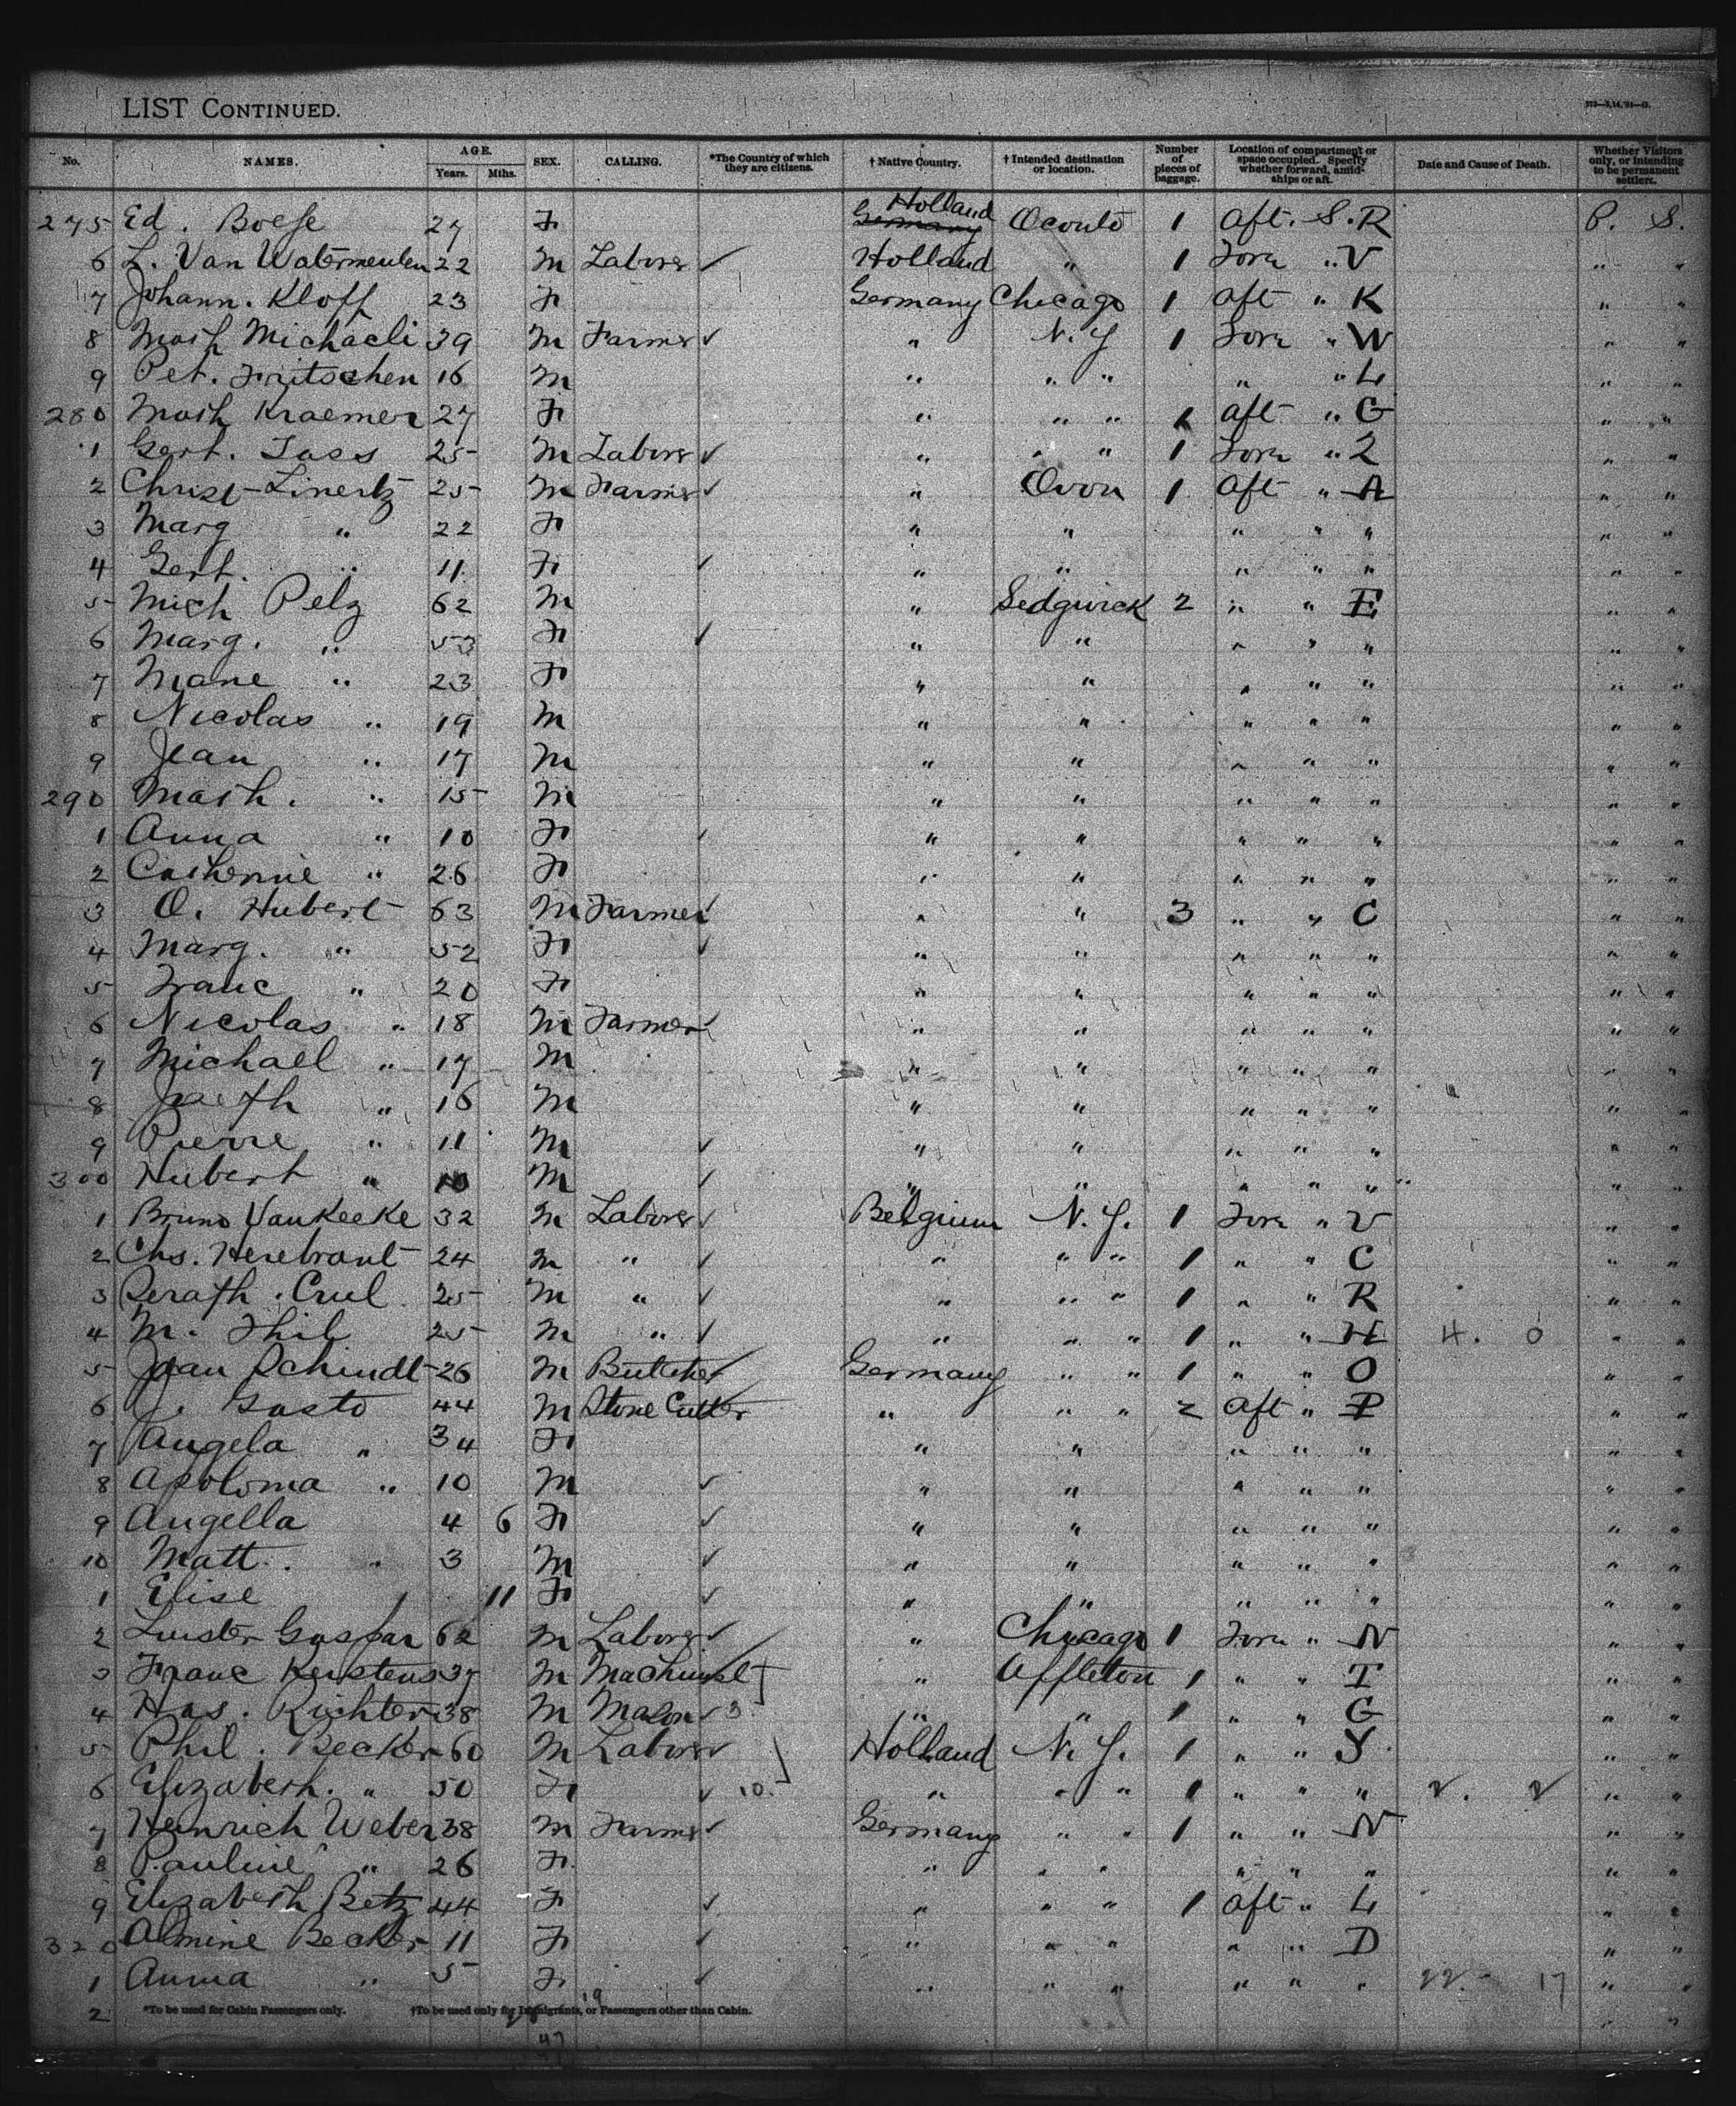 LIST CONTINUED.
No. NAMES. AGE. Years. Mths. SEX. CALLING. *The Country of which they are citizens. † Native Country. † Intended destination or location. Number of pieces of baggage. Location of compartment or space occupied. Specify whether forward, amidships or aft. Date and Cause of Death. Whether Visitors only, or intending to be permanent settlers.
275 Ed. Boese 27 F Germany Holland Oconto 1 aft. S. R P. S.
6 L. Van Watermeulen 22 M Laborer ✓ Holland " 1 Forw " V " "
7 Johann. Kloff 23 F Germany Chicago 1 aft " K " "
8 Math Michaeli 39 M Farmer ✓ " N. Y 1 Forw " W " "
9 Pet. Fritschen 16 M " " " " " L " "
280 Math Kraemer 27 F " " " 1 aft " G " "
1 Gert. Jass 25 M Laborer ✓ " " " 1 Forw " Z " "
2 Christ Linertz 25 M Farmer ✓ " 1 aft " A " "
3 Marg " 22 F " " " " " " "
4 Gert. " 11 F ✓ " " " " " " "
5 Mich Pelz 62 M " Sedgwick 2 " " E " "
6 Marg. " 53 F ✓ " " " " " " "
7 Marie " 23 F " " " " " " "
8 Nicolas " 19 M " " " " " " "
9 Jean " 17 M " " " " " " "
290 Math. " 15 M " " " " " " "
1 Anna " 10 F ✓ " " " " " " "
2 Catherine " 26 F " " " " " " "
3 O. Hubert 63 M Farmer ✓ " " 3 " " C " "
4 Marg. " 52 F ✓ " " " " " " "
5 Franc " 20 F " " " " " " "
6 Nicolas " 18 M Farmer ✓ " " " " " " "
7 Michael " 17 M " " " " " " "
8 " 16 M " " " " " " "
9 Pierre " 11 M ✓ " " " " " " "
300 Hubert " 10 M ✓ " " " " " " "
1 Bruno VanKeeke 32 M Laborer ✓ Belgium N. Y. 1 Forw " V " "
2 Chs. Herebrant 24 M " ✓ " " " 1 " " C " "
3 Seraph. Crul 25 M " ✓ " " " 1 " " R " "
4 M. Thil 25 M " ✓ " " " 1 " " H 4. 0 " "
5 Jean Schindt 26 M Butcher ✓ Germany " " 1 " " O " "
6 J. Gasto 44 M Stone Cutter " " " 2 aft " P " "
7 Angela " 34 F " " " " " " "
8 Apolonia " 10 M ✓ " " " " " " "
9 Angella 4 6 F ✓ " " " " " " "
10 Matt. " 3 M ✓ " " " " " " "
1 Elise 11 F ✓ " " " " " " "
2 Luster Gaspar 62 M Laborer ✓ " Chicago 1 Forw " N " "
3 Franc Kerstens 37 M Machinist " Appleton 1 " " T " "
4 Has. Richter 38 M Mason ✓ 3 " " 1 " " G " "
5 Phil. Becker 60 M Laborer ✓ Holland N. Y. 1 " " Y " "
6 Elizabeth. " 50 F ✓ 10. " " " 1 " " " 2. 2 " "
7 Heinrich Weber 38 M Farmer ✓ Germany " " 1 " " N " "
8 Pauline " 26 F " " " " " " " "
9 Elizabeth Betz 44 F ✓ " " " 1 aft " L " "
320 Almine Becker 11 F ✓ " " " " " D " "
1 Anna " 5 F ✓ " " " " " " 22 - 17 " "
2 *To be used for Cabin Passengers only. †To be used only for Immigrants, or Passengers other than Cabin. " "
19
47